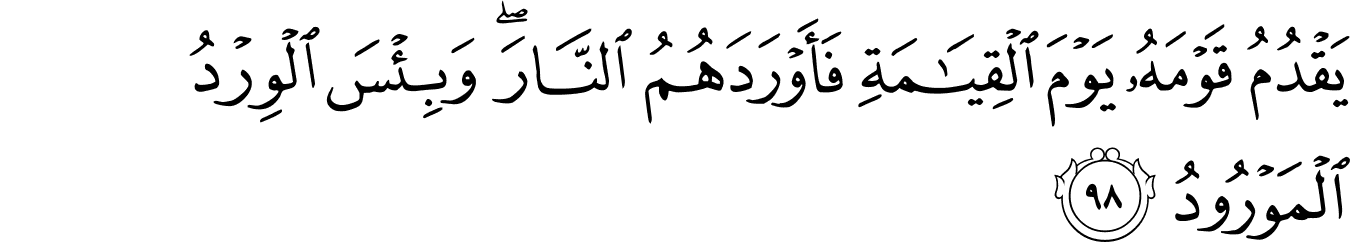 يَقْدُمُ قَوْمَهُۥ يَوْمَ ٱلْقِيَـٰمَةِ فَأَوْرَدَهُمُ ٱلنَّارَ ۖ وَبِئْسَ ٱلْوِرْدُ
ٱلْمَوْرُودُ ٩٨